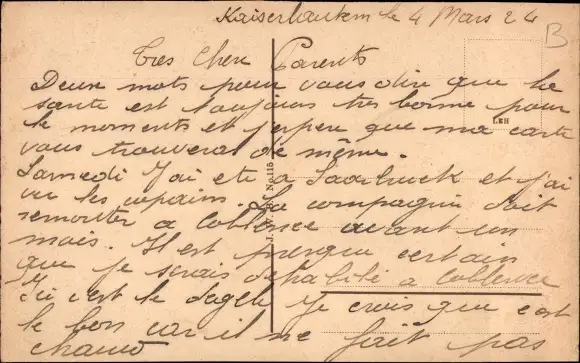 Kaiserlautern le 4 Mars 24
B
Tres Cher Parents
Deux mots pour vous dire que la
sante est toujours très bonne pour
le moments et j'espere que ma carte
vous trouvera de même.
LEH
Samedi J'ai ete a Saarbruck et j'ai
vu les copains. La compagnie doit
remonter a Coblence avant un
mois. Il est presque certain
que je serais a Coblence
Ici c'est le Je crois que c'est
le bon car il ne fait pas
chaud
J. W. B. No. 115